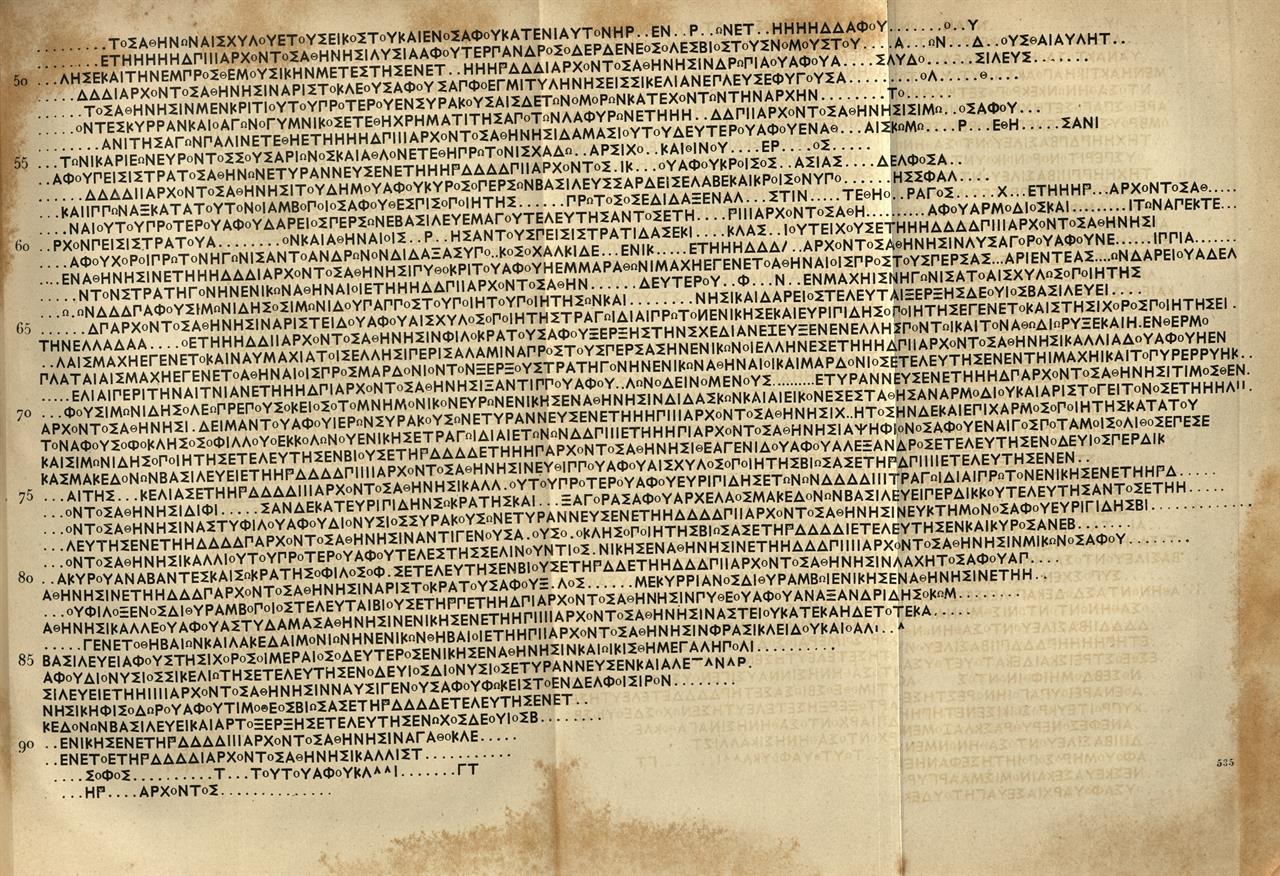 .........ΤοΣΑΘΗΝΩΝΑΙΣΧΥΛοΥΕΤοΥΣΕΙΚοΣΤοΥΚΑΙΕΝοΣΑΦοΥΚΑΤΕΝΙΑΥΤοΝΗΡ..ΕΝ..Ρ..ΩΝΕΤ..ΗΗΗΗΔΔΑΦοΥ.......ο..Υ
........ΕΤΗΗΗΗΗΔΓΙΙΙΑΡΧοΝΤοΣΑΘΗΝΗΣΙΛΥΣΙΑΑΦοΥΤΕΡΓΑΝΔΡοΣοΔΕΡΔΕΝΕοΣοΛΕΣΒΙοΣΤοΥΣΝοΜοΥΣΤοΥ....Α...ΩΝ...Δ..οΥΣΘΑΙΑΥΛΗΤ..
50 ...ΛΗΣΕΚΑΙΤΗΝΕΜΠΡοΣΘΕΜοΥΣΙΚΗΝΜΕΤΕΣΤΗΣΕΝΕΤ..ΗΗΗΓΔΔΔΙΑΡΧοΝΤοΣΑΘΗΝΗΣΙΝΔΡΩΠΙΔΑΦοΥΑ....ΣΛΥΔο.....ΣΙΛΕΥΣ.......
.....ΔΔΔΙΑΡΧοΝΤοΣΑΘΗΝΗΣΙΝΑΡΙΣΤοΚΛΕοΥΣΑΦοΥΣΑΓΦοΕΓΜΙΤΥΛΗΝΗΣΕΙΣΣΙΚΕΛΙΑΝΕΓΛΕΥΣΕΦΥΓοΥΣΑ.........οΛ.....Θ....
......ΤοΣΑΘΗΝΗΣΙΝΜΕΝΚΡΙΤΙοΥΤοΥΓΡοΤΕΡοΥΕΝΣΥΡΑΚοΥΣΑΙΣΔΕΤΩΝΓΑΜοΡΩΝΚΑΤΕΧοΝΤΩΝΤΗΝΑΡΧΗΝ........Το......
.....οΝΤΕΣΚΥΡΡΑΝΚΑΙοΑΓΩΝοΓΥΜΝΙΚοΣΕΤΕΘΗΧΡΗΜΑΤΙΤΗΣΑΓοΤΩΝΛΑΦΥΡΩΝΕΤΗΗΗ..ΔΔΓΙΙΑΡΧοΝΤοΣΑΘΗΝΗΣΙΣΙΜΩ...οΣΑΦοΥ...
........ΑΝΙΤΗΣΑΓΩΝΓΑΛΙΝΕΤΕΘΗΕΤΗΗΗΗΔΓΙΙΙΑΡΧοΝΤοΣΑΘΗΝΗΣΙΔΑΜΑΣΙοΥΤοΥΔΕΥΤΕΡοΥΑΦοΥΕΝΑΘ...ΑΙΣΚΩΜΩ....Ρ...ΕΘΗ.....ΣΑΝΙ
55 ...ΤΩΝΙΚΑΡΙΕΩΝΕΥΡοΝΤοΣΣοΥΣΑΡΙΩΝοΣΚΑΙΑΘΛοΝΕΤΕΘΗΓΡΩΤοΝΙΣΧΑΔΩ..ΑΡΣΙΧο..ΚΑΙΘΙΝοΥ....ΕΡ....οΣ.....
..ΑΦοΥΓΕΙΣΙΣΤΡΑΤοΣΑΘΗΝΩΝΕΤΥΡΑΝΝΕΥΣΕΝΕΤΗΗΗΓΔΔΔΔΓΙΙΑΡΧοΝΤοΣ.ΙΚ...οΥΑΦοΥΚΡοΙΣοΣ..ΑΣΙΑΣ....ΔΕΛΦοΣΑ...
......ΔΔΔΔΙΙΑΡΧοΝΤοΣΑΘΗΝΗΣΙΤοΥΔΗΜοΥΑΦοΥΚΥΡοΣοΓΕΡΣΩΝΒΑΣΙΛΕΥΣΣΑΡΔΕΙΣΕΛΑΒΕΚΑΙΚΡοΙΣοΝΥΓο.....ΗΣΣΦΑΛ....
...ΚΑΙΙΓΓΩΝΑΞΚΑΤΑΤοΥΤοΝοΙΑΜΒοΓοΙοΣΑΦοΥΘΕΣΓΙΣοΓοΙΗΤΗΣ.....ΓΡΩΤοΣοΣΕΔΙΔΑΞΕΝΑΛ...ΣΤΙΝ.....ΤΕΘΗο..ΡΑΓοΣ......Χ...ΕΤΗΗΗΓ...ΑΡΧοΝΤοΣΑΘ.....
...ΝΑΙοΥΤοΥΓΡοΤΕΡοΥΑΦοΥΔΑΡΕΙοΣΓΕΡΣΩΝΕΒΑΣΙΛΕΥΕΜΑΓοΥΤΕΛΕΥΤΗΣΑΝΤοΣΕΤΗ....ΡΙΙΙΑΡΧοΝΤοΣΑΘΗ.........ΑΦοΥΑΡΜοΔΙοΣΚΑΙ.........ΙΤΩΝΑΓΕΚΤΕ...
60 .ΡΧοΝΓΕΙΣΙΣΤΡΑΤοΥΑ.........οΝΚΑΙΑΘΗΝΑΙοΙΣ..Ρ..ΗΣΑΝΤοΥΣΓΕΙΣΙΣΤΡΑΤΙΔΑΣΕΚΙ....ΚΛΑΣ...ΙοΥΤΕΙΧοΥΣΕΤΗΗΗΔΔΔΔΓΙΙΙΑΡΧοΝΤοΣΑΘΗΝΗΣΙ
....ΑΦοΥΧοΡοΙΓΡΩΤοΝΗΓΩΝΙΣΑΝΤοΑΝΔΡΩΝοΝΔΙΔΑΞΑΣΥΓο..ΚοΣοΧΑΛΚΙΔΕ...ΕΝΙΚ.....ΕΤΗΗΗΗΔΔΔ/..ΑΡΧοΝΤοΣΑΘΗΝΗΣΙΝΛΥΣΑΓοΡοΥΑΦοΥΝΕ......ΙΓΓΙΑ.......
...ΕΝΑΘΗΝΗΣΙΝΕΤΗΗΗΔΔΔΙΑΡΧοΝΤοΣΑΘΗΝΗΣΙΓΥΘοΚΡΙΤοΥΑΦοΥΗΕΜΜΑΡΑΘΩΝΙΜΑΧΗΕΓΕΝΕΤοΑΘΗΝΑΙοΙΣΓΡοΣΤοΥΣΓΕΡΣΑΣ...ΑΡΙΕΝΤΕΑΣ....ΩΝΔΑΡΕΙοΥΑΔΕΛ
.....ΝΤοΝΣΤΡΑΤΗΓοΝΗΝΕΝΙΚΩΝΑΘΗΝΑΙοΙΕΤΗΗΗΔΔΓΙΙΑΡΧοΝΤοΣΑΘΗΝ......ΔΕΥΤΕΡοΥ..Φ...Ν..ΕΝΜΑΧΗΙΣΝΗΓΩΝΙΣΑΤοΑΙΣΧΥΛΩΣοΓοΙΗΤΗΣ
...Ω.ΩΝΔΔΔΓΑΦοΥΣΙΜΩΝΙΔΗΣοΣΙΜΩΝΙΔοΥΓΑΓΓοΣΤοΥΓοΙΗΤοΥΓοΙΗΤΗΣΩΝΚΑΙ........ΝΗΣΙΚΑΙΔΑΡΕΙοΣΤΕΛΕΥΤΑΙΞΕΡΞΗΣΔΕοΥΙοΣΒΑΣΙΛΕΥΕΙ....
65 ......ΔΓΑΡΧοΝΤοΣΑΘΗΝΗΣΙΝΑΡΙΣΤΕΙΔοΥΑΦοΥΑΙΣΧΥΛοΣοΓοΙΗΤΗΣΤΡΑΓΩΙΔΙΑΙΓΡΩΤοΝΕΝΙΚΗΣΕΚΑΙΕΥΡΙΓΙΔΗΣοΓοΙΗΤΗΣΕΓΕΝΕΤοΚΑΙΣΤΗΣΙΧοΡοΣΓοΙΗΤΗΣΕΙ.
ΤΗΝΕΛΛΑΔΑΑ....οΕΤΗΗΗΔΔΙΙΑΡΧοΝΤοΣΑΘΗΝΗΣΙΝΦΙΛοΚΡΑΤοΥΣΑΦοΥΞΕΡΞΗΣΤΗΝΣΧΕΔΙΑΝΕΞΕΥΞΕΝΕΝΕΛΛΗΣΓοΝΤΩΙΚΑΙΤοΝΑΘΩΔΙΩΡΥΞΕΚΑΙΗ.ΕΝΘΕΡΜο
..ΛΑΙΣΜΑΧΗΕΓΕΝΕΤοΚΑΙΝΑΥΜΑΧΙΑΤοΙΣΕΛΛΗΣΙΓΕΡΙΣΑΛΑΜΙΝΑΓΡοΣΤοΥΣΓΕΡΣΑΣΗΝΕΝΙΚΩΝοΙΕΛΛΗΝΕΣΕΤΗΗΗΔΓΙΙΑΡΧοΝΤοΣΑΘΗΝΗΣΙΚΑΛΛΙΑΔοΥΑΦοΥΗΕΝ
ΓΛΑΤΑΙΑΙΣΜΑΧΗΕΓΕΝΕΤοΑΘΗΝΑΙοΙΣΓΡοΣΜΑΡΔοΝΙοΝΤοΝΞΕΡΞοΥΣΤΡΑΤΗΓοΝΗΝΕΝΙΚΩΝΑΘΗΝΑΙοΙΚΑΙΜΑΡΔοΝΙοΣΕΤΕΛΕΥΤΗΣΕΝΕΝΤΗΙΜΑΧΗΙΚΑΙΤοΓΥΡΕΡΡΥΗΚ..
.....ΕΛΙΑΙΓΕΡΙΤΗΝΑΙΤΝΙΑΝΕΤΗΗΗΔΓΙΙΑΡΧοΝΤοΣΑΘΗΝΗΣΙΞΑΝΤΙΓΓοΥΑΦοΥ..ΛΩΝοΔΕΙΝοΜΕΝοΥΣ.........ΕΤΥΡΑΝΝΕΥΣΕΝΕΤΗΗΗΔΓΑΡΧοΝΤοΣΑΘΗΝΗΣΙΤΙΜοΣΘΕΝ.
70 ...ΦοΥΣΙΜΩΝΙΔΗΣοΛΕΩΓΡΕΓοΥΣοΚΕΙοΣοΤοΜΝΗΜοΝΙΚοΝΕΥΡΩΝΕΝΙΚΗΣΕΝΑΘΗΝΗΣΙΝΔΙΔΑΣΚΩΝΚΑΙΑΙΕΙΚοΝΕΣΕΣΤΑΘΗΣΑΝΑΡΜοΔΙοΥΚΑΙΑΡΙΣΤοΓΕΙΤοΝοΣΕΤΗΗΗΛΙΙ.
ΑΡΧοΝΤοΣΑΘΗΝΗΣΙ.ΔΕΙΜΑΝΤοΥΑΦοΥΙΕΡΩΝΣΥΡΑΚοΥΣΩΝΕΤΥΡΑΝΝΕΥΣΕΝΕΤΗΗΗΓΙΙΙΑΡΧοΝΤοΣΑΘΗΝΗΣΙΧ..ΗΤοΣΗΝΔΕΚΑΙΕΓΙΧΑΡΜοΣοΓοΙΗΤΗΣΚΑΤΑΤοΥ
ΤοΝΑΦοΥΣοΦοΚΛΗΣοΣοΦΙΛΛοΥοΕΚΚοΛΩΝοΥΕΝΙΚΗΣΕΤΡΑΓΩΙΔΙΑΙΕΤΩΝΩΝΔΔΓΙΙΙΕΤΗΗΗΓΙΑΡΧοΝΤοΣΑΘΗΝΗΣΙΑΨΗΦΙοΝοΣΑΦοΥΕΝΑΙΓοΣΓοΤΑΜοΙΣοΛΙΘοΣΕΓΕΣΕ
ΚΑΙΣΙΜΩΝΙΔΗΣοΓοΙΗΤΗΣΕΤΕΛΕΥΤΗΣΕΝΒΙοΥΣΕΤΗΓΔΔΔΔΕΤΗΗΗΓΑΡΧοΝΤοΣΑΘΗΝΗΣΙΘΕΑΓΕΝΙΔοΥΑΦοΥΑΛΕΞΑΝΔΡοΣΕΤΕΛΕΥΤΗΣΕΝοΔΕΥΙοΣΓΕΡΔΙΚ
ΚΑΣΜΑΚΕΔοΝΩΝΒΑΣΙΛΕΥΕΙΕΤΗΗΓΔΔΔΔΓΙΙΙΙΑΡΧοΝΤοΣΑΘΗΝΗΣΙΝΕΥΘΙΓΓοΥΑΦοΥΑΙΣΧΥΛοΣοΓοΙΗΤΗΣΒΙΩΣΑΣΕΤΗΓΔΓΙΙΙΙΕΤΕΛΕΥΤΗΣΕΝΕΝ..
75 ....ΑΙΤΗΣ...ΚΕΛΙΑΣΕΤΗΗΓΔΔΔΔΙΙΙΑΡΧοΝΤοΣΑΘΗΝΗΣΙΚΑΛΛ.οΥΤοΥΓΡοΤΕΡοΥΑΦοΥΕΥΡΙΓΙΔΗΣΕΤΩΝΩΝΔΔΔΔΙΙΙΤΡΑΓΩΙΔΙΑΙΓΡΩΤοΝΕΝΙΚΗΣΕΝΕΤΗΗΓΔ.....
...οΝΤοΣΑΘΗΝΗΣΙΔΙΦΙ.....ΣΑΝΔΕΚΑΤΕΥΡΙΓΙΔΗΝΣΩΚΡΑΤΗΣΚΑΙ...ΞΑΓΟΡΑΣΑΦοΥΑΡΧΕΛΑοΣΜΑΚΕΔοΝΩΝΒΑΣΙΛΕΥΕΙΓΕΡΔΙΚΚοΥΤΕΛΕΥΤΗΣΑΝΤοΣΕΤΗΗ.....
...οΝΤοΣΑΘΗΝΗΣΙΝΑΣΤΥΦΙΛοΥΑΦοΥΔΙοΝΥΣΙοΣΣΥΡΑΚοΥΣΩΝΕΤΥΡΑΝΝΕΥΣΕΝΕΤΗΗΔΔΔΔΓΙΙΑΡΧοΝΤοΣΑΘΗΝΗΣΙΝΕΥΚΤΗΜοΝοΣΑΦοΥΕΥΡΙΓΙΔΗΣΒΙ.............
...ΛΕΥΤΗΣΕΝΕΤΗΗΔΔΔΔΓΑΡΧοΝΤοΣΑΘΗΝΗΣΙΝΑΝΤΙΓΕΝοΥΣΑ.οΥΣο.οΚΛΗΣοΓοΙΗΤΗΣΒΙΩΣΑΣΕΤΗΓΔΔΔΔΙΕΤΕΛΕΥΤΗΣΕΝΚΑΙΚΥΡοΣΑΝΕΒ.......
...οΝΤοΣΑΘΗΝΗΣΙΚΑΛΛΙοΥΤοΥΓΡοΤΕΡοΥΑΦοΥΤΕΛΕΣΤΗΣΣΕΛΙΝοΥΝΤΙοΣ.ΝΙΚΗΣΕΝΑΘΗΝΗΣΙΝΕΤΗΗΔΔΔΓΙΙΙΙΑΡΧοΝΤοΣΑΘΗΝΗΣΙΝΜΙΚΩΝοΣΑΦοΥ........
80 ..ΑΚΥΡοΥΑΝΑΒΑΝΤΕΣΚΑΙΣΩΚΡΑΤΗΣοΦΙΛοΣοΦ.ΣΕΤΕΛΕΥΤΗΣΕΝΒΙοΥΣΕΤΗΓΔΔΕΤΗΗΔΔΔΓΙΙΑΡΧοΝΤοΣΑΘΗΝΗΣΙΝΛΑΧΗΤοΣΑΦοΥΑΓ....
ΑΘΗΝΗΣΙΝΕΤΗΗΔΔΔΓΑΡΧοΝΤοΣΑΘΗΝΗΣΙΝΑΡΙΣΤοΚΡΑΤοΥΣΑΦοΥΞ.ΛοΣ......ΜΕΚΥΡΡΙΑΝοΣΔΙΘΥΡΑΜΒΩΙΕΝΙΚΗΣΕΝΑΘΗΝΗΣΙΝΕΤΗΗ..
...οΥΦΙΛοΞΕΝοΣΔΙΘΥΡΑΜΒοΓοΙοΣΤΕΛΕΥΤΑΙΒΙοΥΣΕΤΗΓΓΕΤΗΗΔΓΙΑΡΧοΝΤοΣΑΘΗΝΗΣΙΝΓΥΘΕοΥΑΦοΥΑΝΑΞΑΝΔΡΙΔΗΣοΚΩΜ.......
ΑΘΗΝΗΣΙΚΑΛΛΕοΥΑΦοΥΑΣΤΥΔΑΜΑΣΑΘΗΝΗΣΙΝΕΝΙΚΗΣΕΝΕΤΗΗΓΙΙΙΙΑΡΧοΝΤοΣΑΘΗΝΗΣΙΝΑΣΤΕΙοΥΚΑΤΕΚΑΗΔΕΤοΤΕΚΑ.....
.....ΓΕΝΕΤοΘΗΒΑΙΩΝΚΑΙΛΑΚΕΔΑΙΜοΝΙΩΝΗΝΕΝΙΚΩΝΘΗΒΑΙοΙΕΤΗΗΓΙΙΑΡΧοΝΤοΣΑΘΗΝΗΣΙΝΦΡΑΣΙΚΛΕΙΔοΥΚΑΙοΑΛΙ..^
85 ΒΑΣΙΛΕΥΕΙΑΦοΥΣΤΗΣΙΧοΡοΣοΙΜΕΡΑΙοΣοΔΕΥΤΕΡοΣΕΝΙΚΗΣΕΝΑΘΗΝΗΣΙΝΚΑΙΩΙΚΙΣΘΗΜΕΓΑΛΗΓοΛΙ..........
ΑΦοΥΔΙοΝΥΣΙοΣΣΙΚΕΛΙΩΤΗΣΕΤΕΛΕΥΤΗΣΕΝοΔΕΥΙοΣΔΙοΝΥΣΙοΣΕΤΥΡΑΝΝΕΥΣΕΝΚΑΙΑΛΕ¯^ΝΔΡ.
ΣΙΛΕΥΕΙΕΤΗΗΙΙΙΙΑΡΧοΝΤοΣΑΘΗΝΗΣΙΝΝΑΥΣΙΓΕΝοΥΣΑΦοΥΦΩΚΕΙΣΤοΕΝΔΕΛΦοΙΣΙΡοΝ........
ΝΗΣΙΚΗΦΙΣοΔΩΡοΥΑΦοΥΤΙΜοΘΕοΣΒΙΩΣΑΣΕΤΗΓΔΔΔΔΕΤΕΛΕΥΤΗΣΕΝΕΤ..
ΚΕΔοΝΩΝΒΑΣΙΛΕΥΕΙΚΑΙΑΡΤοΞΕΡΞΗΣΕΤΕΛΕΥΤΗΣΕΝΩΧοΣΔΕοΥΙοΣΒ........
90 ..ΕΝΙΚΗΣΕΝΕΤΗΓΔΔΔΔΙΙΙΑΡΧοΝΤοΣΑΘΗΝΗΣΙΝΑΓΑΘοΚΛΕ.....
..ΕΝΕΤοΕΤΗΓΔΔΔΔΙΑΡΧοΝΤοΣΑΘΗΝΗΣΙΚΑΛΛΙΣΤ...........
....ΣοΦοΣ..........Τ...ΤοΥΤοΥΑΦοΥΚΛ^^Ι.......ΓΤ
...ΗΓ....ΑΡΧοΝΤοΣ..............
535